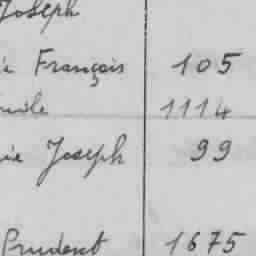 Joseph
François 105
1114
Joseph 99
Prudent 1675